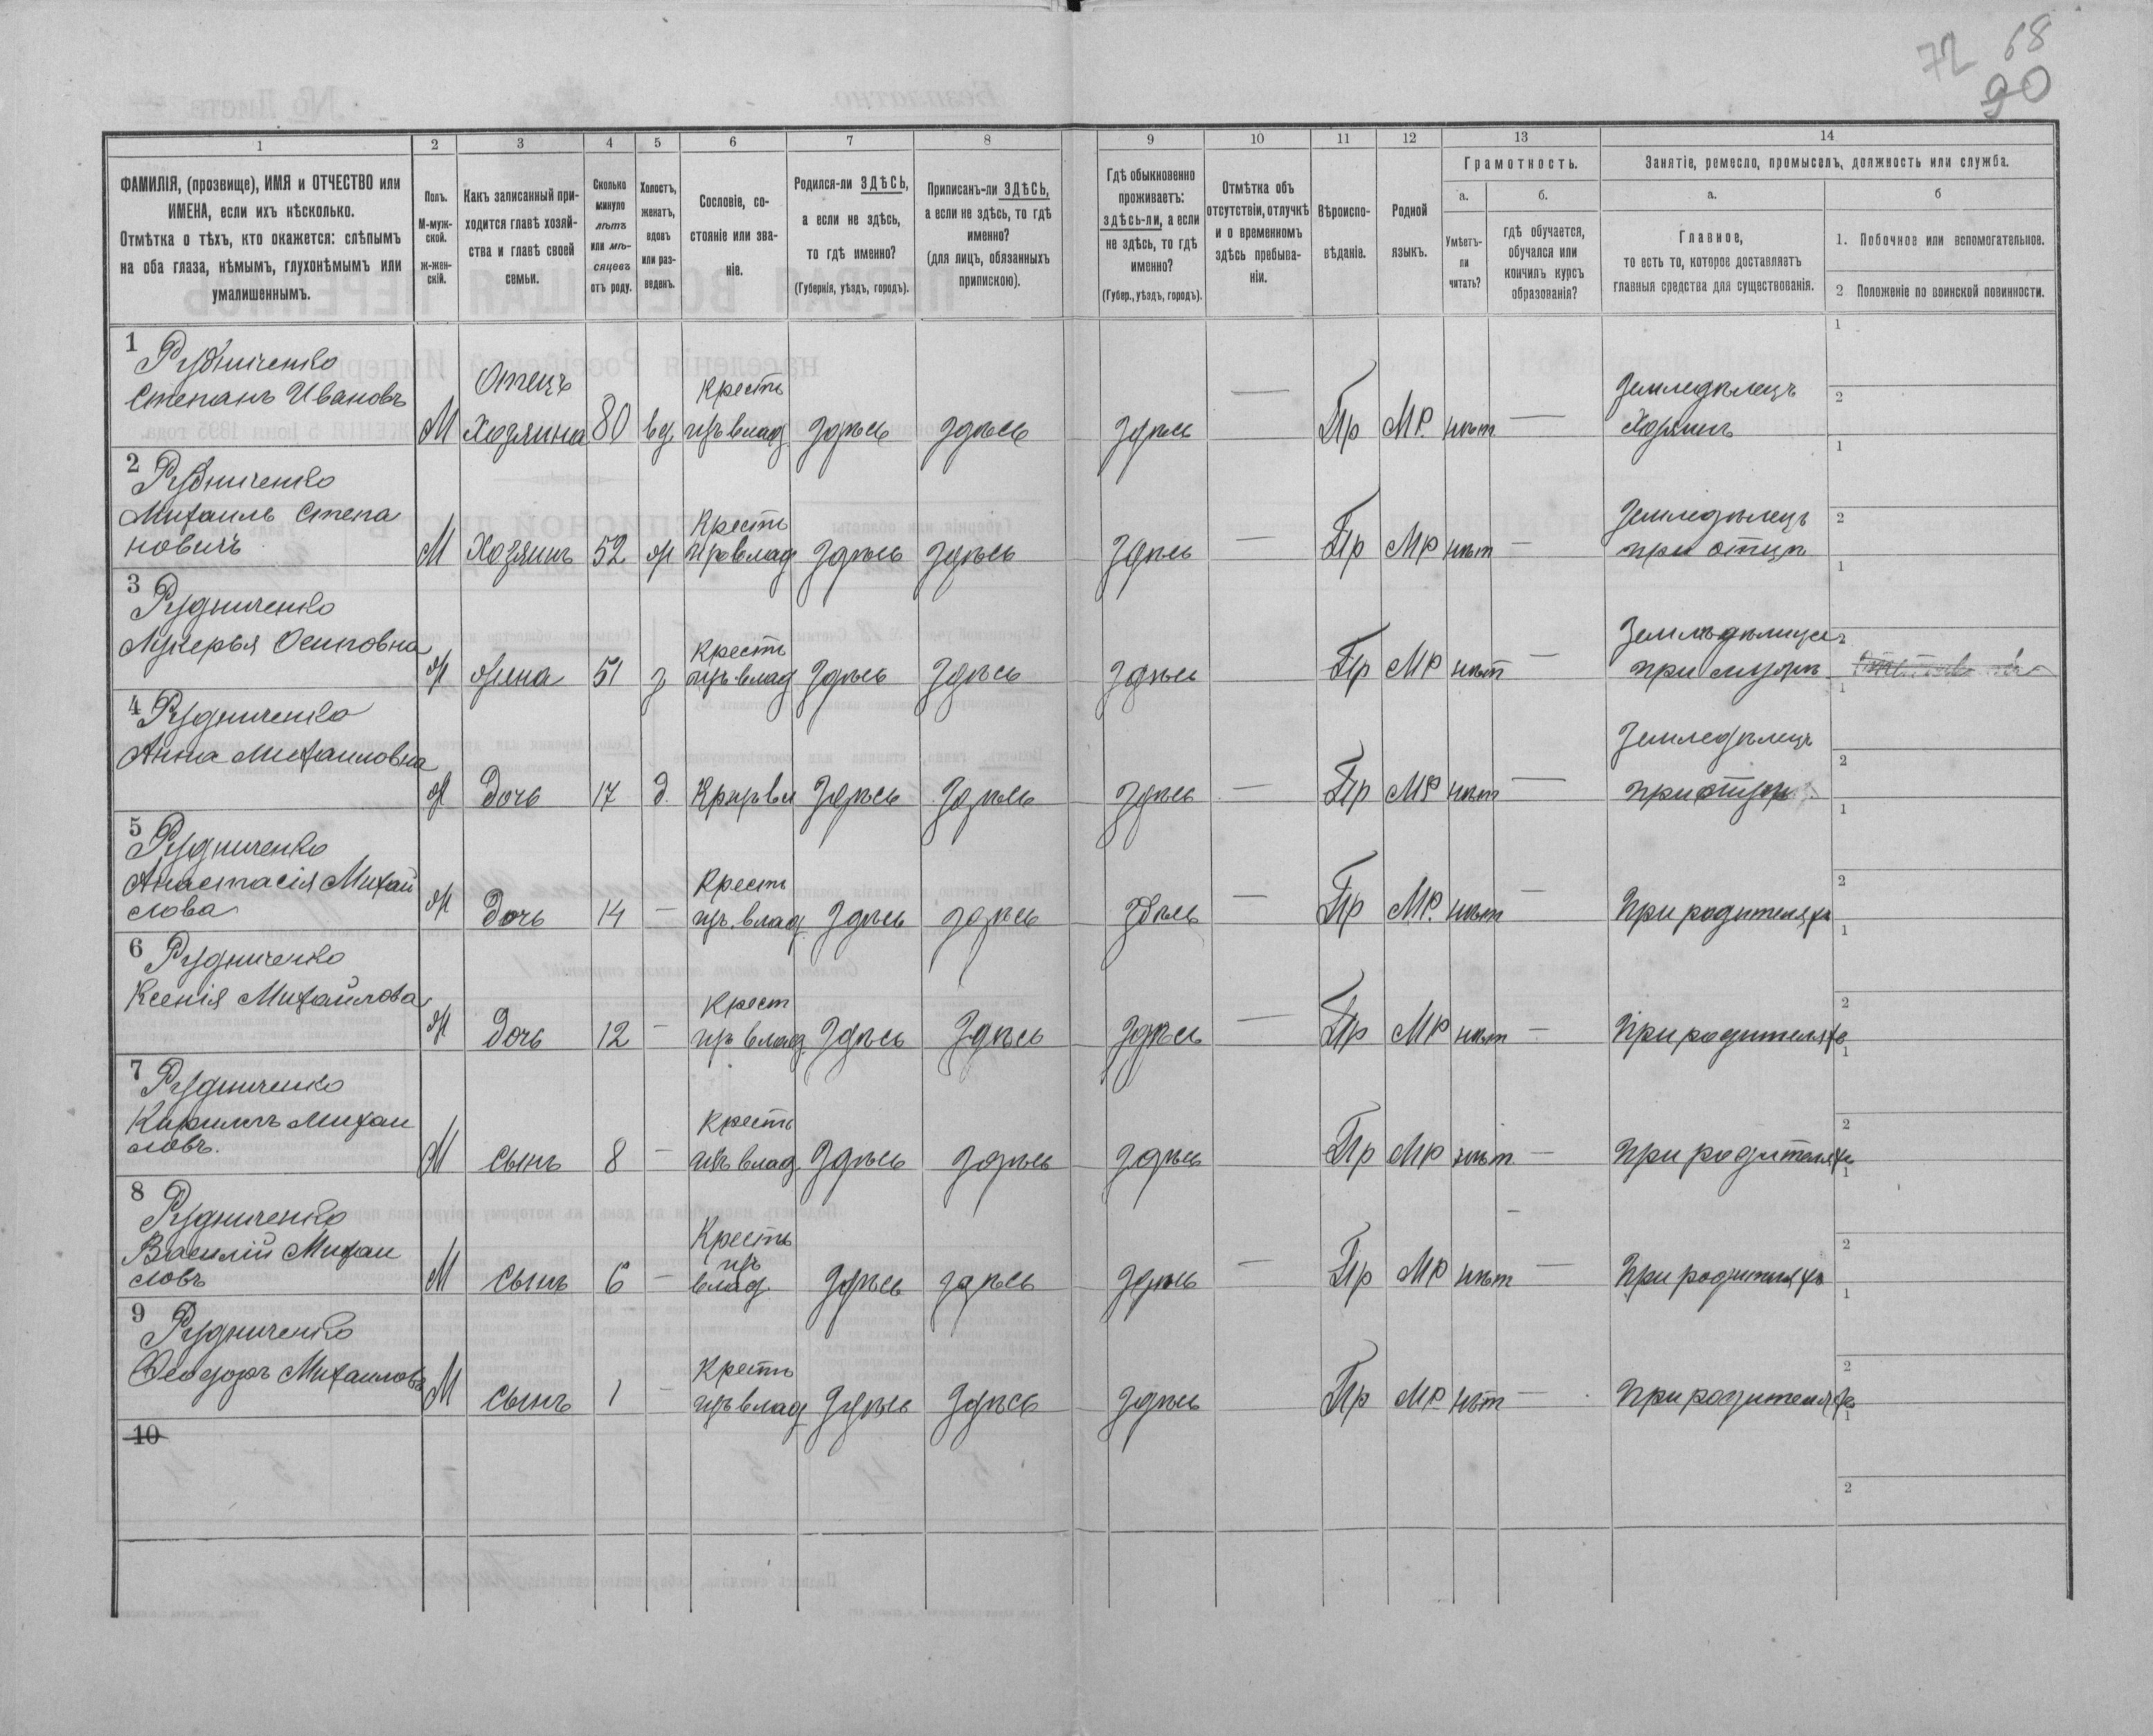 72 68
90
1 2 3 4 5 6 7 8 9 10 11 12 13 14
ФАМИЛІЯ, (прозвище), ИМЯ и ОТЧЕСТВО или
ИМЕНА, если ихъ нѣсколько.
Отмѣтка о тѣхъ, кто окажется: слѣпымъ
на оба глаза, нѣмымъ, глухонѣмымъ или
умалишеннымъ.
Полъ.
М-муж-
ской.
Ж-жен-
скій.
Какъ записанный при-
ходится главѣ хозяй-
ства и главѣ своей
семьи.
Сколько
минуло
лѣтъ
или мѣ-
сяцевъ
отъ роду.
Холостъ,
женатъ,
вдовъ
или раз-
веденъ.
Сословіе, со-
стояніе или зва-
ніе.
Родился-ли ЗДѢСЬ,
а если не здѣсь,
то гдѣ именно?
(Губернія, уѣздъ, городъ).
Приписанъ-ли ЗДѢСЬ,
а если не здѣсь, то гдѣ
именно?
(для лицъ, обязанныхъ
припискою).
Гдѣ обыкновенно
проживаетъ:
здѣсь-ли, а если
не здѣсь, то гдѣ
именно?
(Губер., уѣздъ, городъ).
Отмѣтка объ
отсутствіи, отлучкѣ
и о временномъ
здѣсь пребыва-
ніи.
Вѣроиспо-
вѣданіе.
Родной
языкъ.
Грамотность.
а.
Умѣетъ-
ли
читать?
б.
гдѣ обучается,
обучался или
кончилъ курсъ
образованія?
Занятіе, ремесло, промыселъ, должность или служба.
а.
Главное,
то есть то, которое доставляетъ
главныя средства для существованія.
б
1. Побочное или вспомогательное.
2 Положеніе по воинской повинности.
1 Рудниченко
Степанъ Ивановъ
М Отецъ
Хозяина 80 вд Кресть
цъ влад. Здѣсь здѣсь здѣсь — Пр МР. нѣт — Земледѣлецъ
Хозяинъ
1
2
2 Рудниченко
Михаилъ Степа
новичъ
М Хозяинъ 52 ж Кресть
цъ влад Здѣсь здѣсь здѣсь — Пр МР нѣт — Земледѣлецъ
при отцѣ
1
2
3 Рудниченко
Лукерья Осиповна
ж жена 51 з Кресть
цъ влад Здѣсь Здѣсь Здѣсь Пр МР нѣт —
при мужѣ
1
2
4 Рудниченко
Анна Михаиловна
ж Дочь 17 д. Кр цъ вл Здѣсь Здѣсь здѣсь — Пр МР нѣт — Земледѣлецъ
при отцѣ
1
2
5 Рудниченко
Анастасія Михай
лова
ж Дочь 14 — Кресть
цъ. влад. Здѣсь здѣсь здѣсь — Пр МР. нѣт — При родителяхъ
1
2
6 Рудниченко
Ксенія Михайлова
ж Дочь 12 — Крест
цъ влад. Здѣсь Здѣсь Здѣсь — Пр МР нѣт — При родителяхъ
1
2
7 Рудниченко
Кирилъ Михаи
ловъ.
М Сынъ 8 — Кресть
цъ влад. Здѣсь здѣсь здѣсь Пр МР нѣт — При родителяхъ
1
2
8 Рудниченко
Василій Михаи
ловъ
М Сынъ 6 — Кресть
цъ
влад. Здѣсь здѣсь здѣсь — Пр МР нѣт — При родителяхъ
1
2
9 Рудниченко
Ѳеодоръ Михаиловъ
М Сынъ 1 — Кресть
цъ влад Здѣсь Здѣсь здѣсь Пр МР нѣт — При родителяхъ
1
2
10
1
2